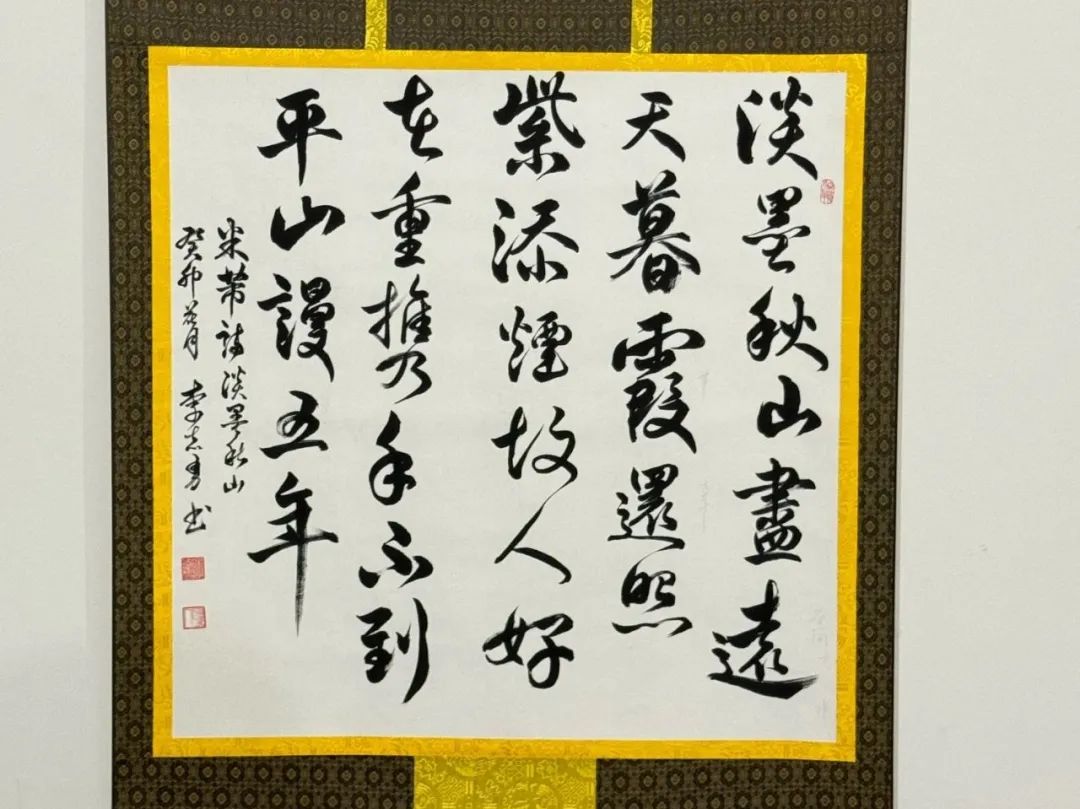 淡墨秋山盡遠
天暮霞還照
紫添煙故人好
在重携手不到
平山謾五年
米芾詩淡墨秋山
癸卯 月 李志勇书